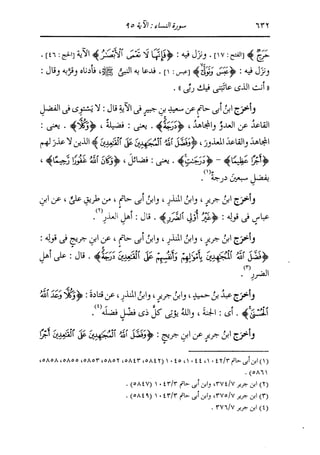 ٦٣٢ سورة النساء : الآية ٩٥
حَرَجٌ﴾ [الفتح : ١٧] . ونزل فيه : ﴿فَإِنَّهَا لَا تَعْمَى ٱلْأَبْصَٰرُ﴾ الآية [الحج : ٤٦] .
ونزل فيه : ﴿عَبَسَ وَتَوَلَّىٰٓ﴾ [عبس : ١] . فدعا به النبيُّ ﷺ ، فأدناه وقرَّبه وقال :
« أنت الذى عاتبنى فيك ربِّى » .
وأخرج ابنُ أبى حاتمٍ عن سعيدِ بنِ جبيرٍ فى الآيةِ قال : لا يستوِى فى الفضلِ
القاعدُ عن العدوِّ والمجاهدُ ، ﴿دَرَجَةً﴾ . يعنى : فضيلةً ، ﴿وَكُلًّا﴾ . يعنى :
المجاهدَ والقاعدَ المعذورَ ، ﴿وَفَضَّلَ ٱللَّهُ ٱلْمُجَٰهِدِينَ عَلَى ٱلْقَٰعِدِينَ﴾ الذين لا عذرَ لهم
﴿أَجْرًا عَظِيمًا﴾ - ﴿دَرَجَٰتٍ﴾ . يعنى : فضائلَ ، ﴿وَكَانَ ٱللَّهُ غَفُورًا رَّحِيمًا﴾ ،
بفضلِ سبعين درجةً(١) .
وأخرج ابنُ جريرٍ ، وابنُ المنذرِ ، وابنُ أبى حاتمٍ ، من طريقِ علىٍّ ، عن ابنِ
عباسٍ فى قوله : ﴿غَيْرُ أُو۟لِى ٱلضَّرَرِ﴾ . قال : أهلُ العذرِ(٢) .
وأخرج ابنُ جريرٍ ، وابنُ المنذرِ ، وابنُ أبى حاتمٍ ، عن ابنِ جريجٍ فى قوله :
﴿فَضَّلَ ٱللَّهُ ٱلْمُجَٰهِدِينَ بِأَمْوَٰلِهِمْ وَأَنفُسِهِمْ عَلَى ٱلْقَٰعِدِينَ دَرَجَةً﴾ . قال : على أهلِ
الضررِ(٣) .
وأخرج عبدُ بنُ حميدٍ ، وابنُ جريرٍ ، وابنُ المنذرِ ، عن قتادةَ : ﴿وَكُلًّا وَعَدَ ٱللَّهُ
ٱلْحُسْنَىٰ﴾ . أى : الجنةَ ، واللهُ يؤتِى كلَّ ذى فضلٍ فضلَه(٤) .
وأخرج ابنُ جريرٍ عن ابنِ جريجٍ : ﴿وَفَضَّلَ ٱللَّهُ ٱلْمُجَٰهِدِينَ عَلَى ٱلْقَٰعِدِينَ أَجْرًا
(١) ابن أبى حاتم ١٠٤٢/٣ ، ١٠٤٤ ، ١٠٤٥ (٥٨٤٢ ، ٥٨٤٣ ، ٥٨٥٢ ، ٥٨٥٣ ، ٥٨٥٥ ، ٥٨٥٨ ،
٥٨٦١) .
(٢) ابن جرير ٣٧٤/٧ ، وابن أبى حاتم ١٠٤٣/٣ (٥٨٤٧) .
(٣) ابن جرير ٣٧٥/٧ ، وابن أبى حاتم ١٠٤٣/٣ (٥٨٤٩) .
(٤) ابن جرير ٣٧٦/٧ .